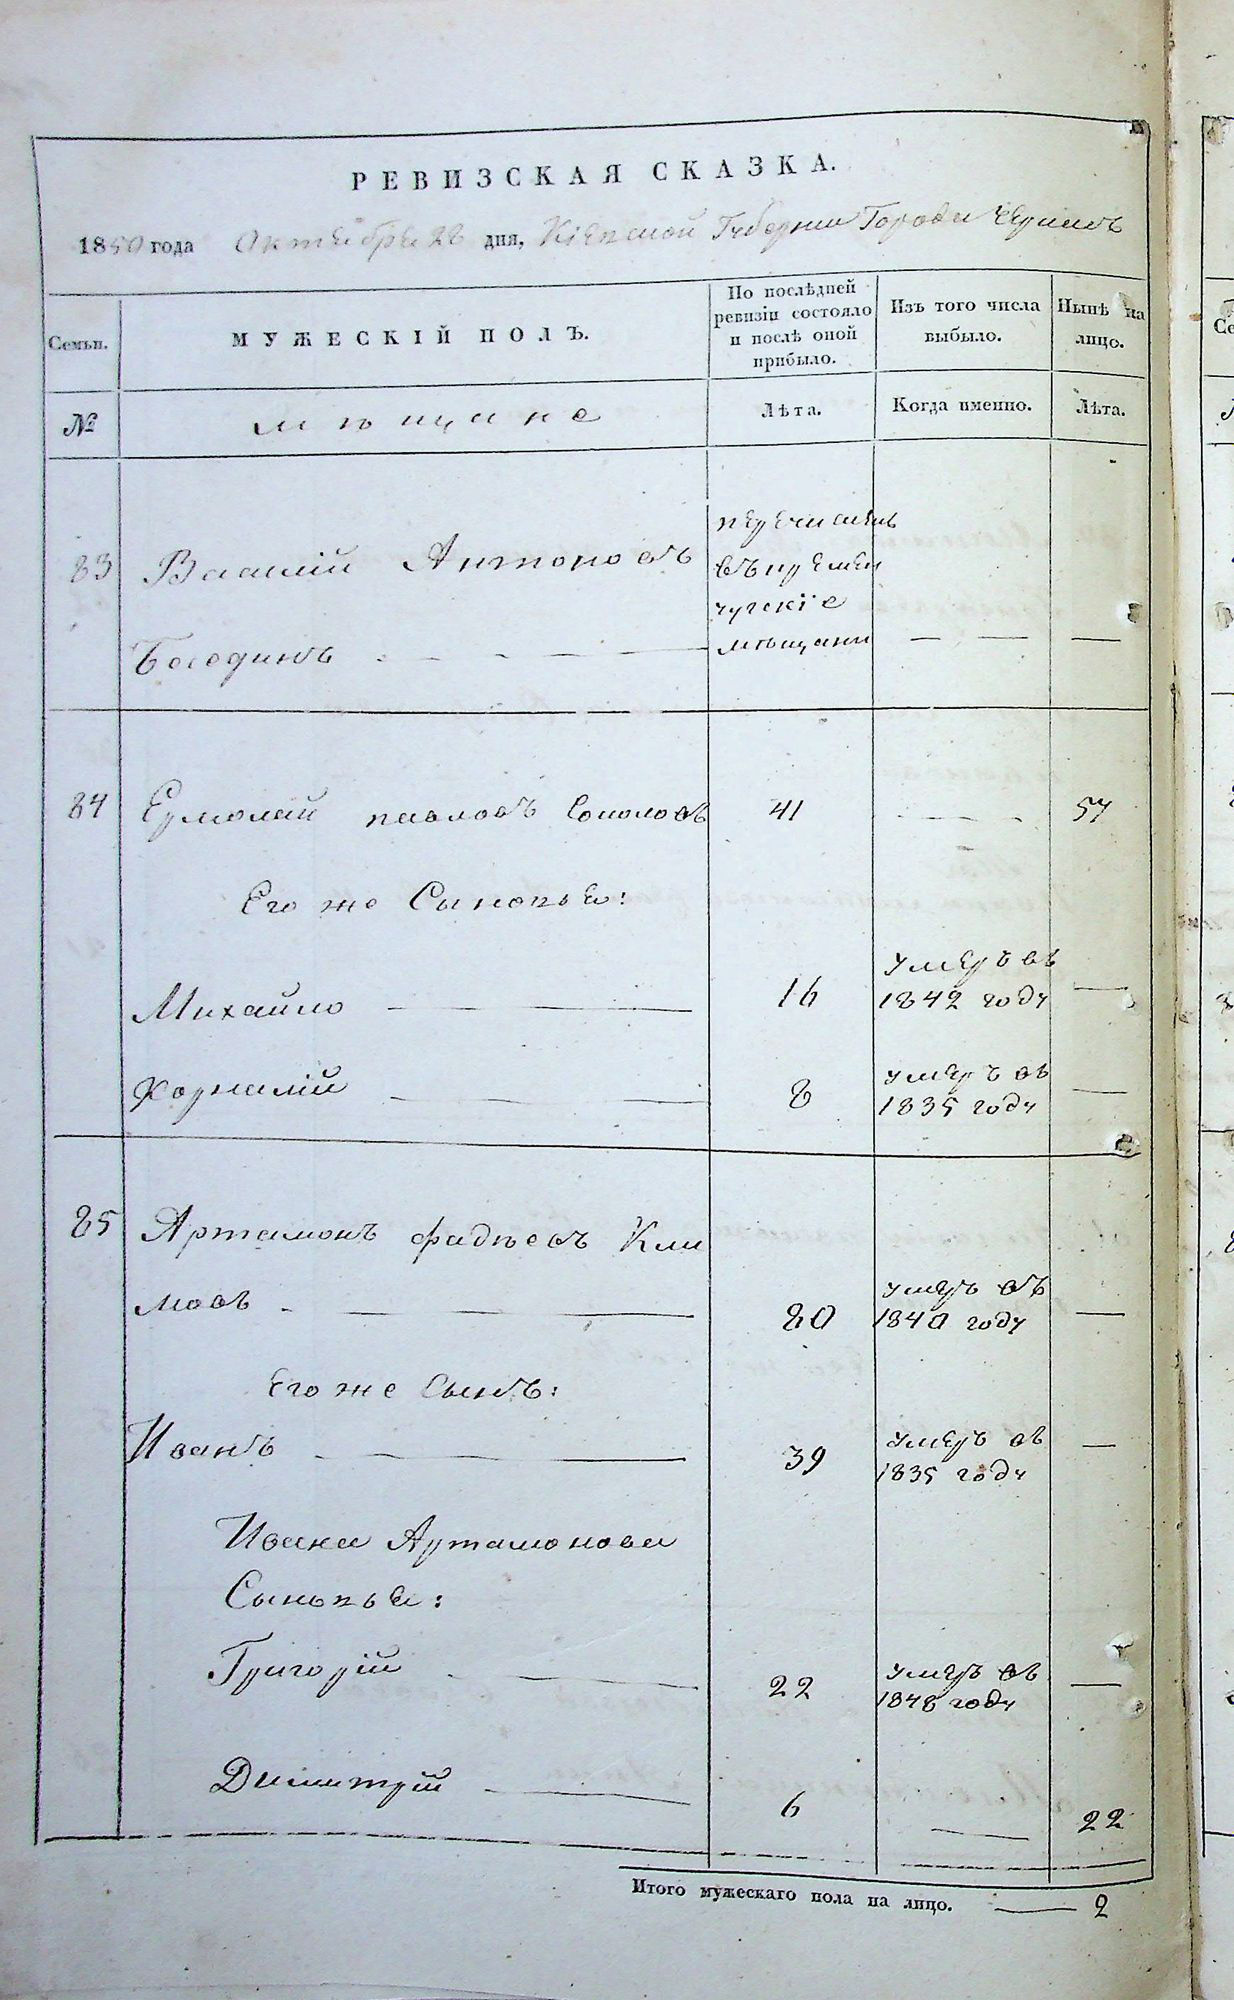 РЕВИЗСКАЯ СКАЗКА.
1850 года Октября 28 дня, Кіевской Губерніи Города
Семьи. МУЖЕСКІЙ ПОЛЪ. По послѣдней ревизіи состояло и послѣ оной прибыло. Изъ того числа выбыло. Нынѣ на лицо.
№ мѣщане Лѣта. Когда именно. Лѣта.
перечисленъ
83 Василій Антоновъ въ кремен
чугскіе
Беседин мѣщани
84 Ермолай павловъ Соколовъ 41 57
Его же Сыновья:
умеръ въ
Михайло 16 1842 году
умеръ въ
Корнилій 8 1835 году
85 Артамонъ фадѣевъ Кли
умеръ въ
мовъ 80 1840 году
Его же Сынъ:
умеръ въ
Иванъ 39 1835 году
Ивана Артамонова
Сыновья:
умеръ въ
Григорій 22 1848 году
Димитрій 6 22
Итого мужескаго пола на лицо. 2